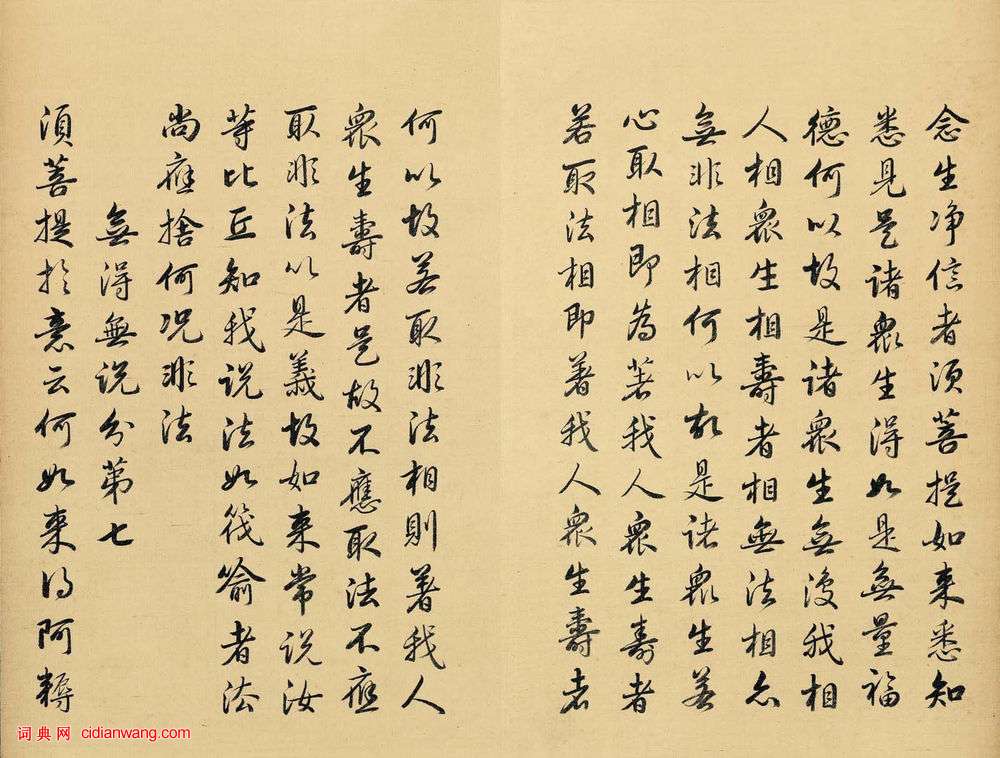 念生净信者須菩提如来悉知
悉見是諸衆生得如是無量福
德何以故是諸衆生無復我相
人相衆生相壽者相無法相亦
無非法相何以故是諸衆生若
心取相即為著我人衆生壽者
若取法相即著我人衆生壽者
何以故若取非法相則著我人
衆生壽者是故不應取法不應
取非法以是義故如来常説汝
等比丘知我説法如筏喻者法
尚應捨何况非法
無得無説分第七
須菩提於意云何如来得阿耨
词典网 cidianwang.com